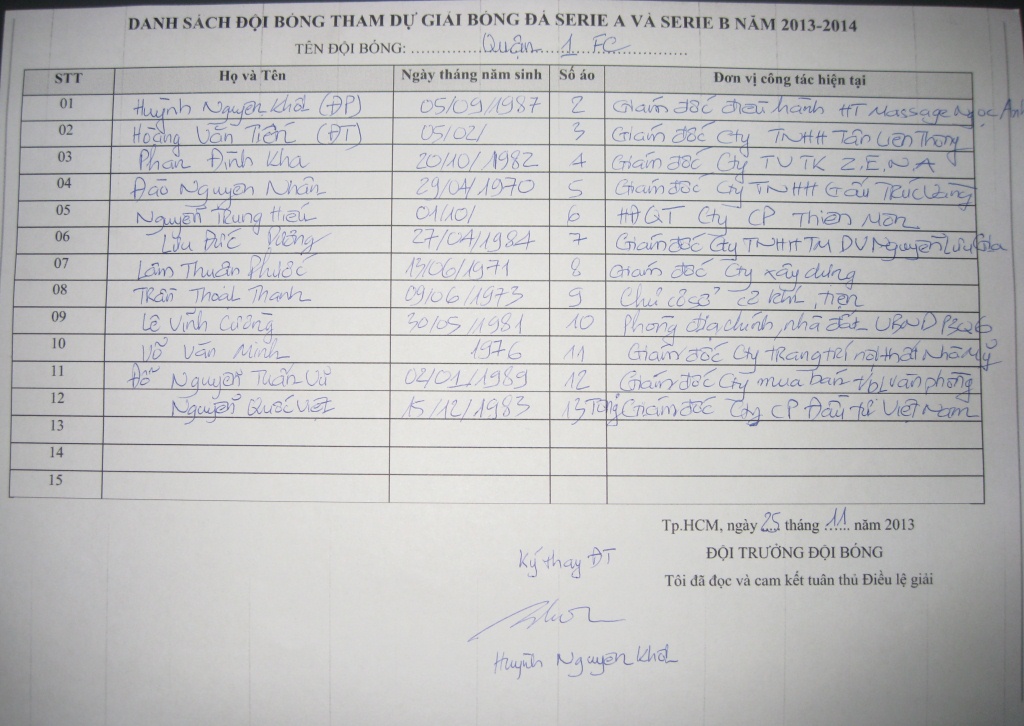 DANH SÁCH ĐỘI BÓNG THAM DỰ GIẢI BÓNG ĐÁ SERIE A VÀ SERIE B NĂM 2013-2014
TÊN ĐỘI BÓNG: Quận 1 FC
STT Họ và Tên Ngày tháng năm sinh Số áo Đơn vị công tác hiện tại
01 Huỳnh Nguyên Khôi (ĐP) 05/09/1987 2 Giám đốc điều hành HT Massage Ngọc Anh
02 Hoàng Văn Tiến (ĐT) 05/02/ 3 Giám đốc Cty TNHH Tân Liên Thông
03 Phan Đình Kha 20/10/1982 4 Giám đốc Cty TVTK Z.E.N.A
04 Đào Nguyên Nhân 29/04/1970 5 Giám đốc Cty TNHH Gấu Trúc Vàng
05 Nguyễn Trung Hiếu 01/10/ 6 HĐQT Cty CP Thiên Môn
06 Lưu Đức 27/04/1984 7 Giám đốc Cty TNHH TM DV Nguyễn Lưu
07 Lâm Thuận Phước 13/06/1971 8 Giám đốc Cty xây dựng
08 Trần Thoại Thanh 09/06/1973 9 Chủ cơ sở cơ khí, tiện
09 Lê Vĩnh Cường 30/05/1981 10 Phòng địa chính, nhà đất UBND P3Q6
10 Võ Văn Minh 1976 11 Giám đốc Cty trang trí nội thất Nhà Mỹ
11 Đỗ Nguyễn Tuấn Vũ 02/01/1989 12 Giám đốc Cty mua bán t/bị văn phòng
12 Nguyễn Quốc Việt 15/12/1983 13 Tổng Giám đốc Cty CP Đầu tư Việt Nam
13
14
15
Tp.HCM, ngày 25 tháng 11 năm 2013
ĐỘI TRƯỞNG ĐỘI BÓNG
Ký thay ĐT
Tôi đã đọc và cam kết tuân thủ Điều lệ giải
Huỳnh Nguyên Khôi